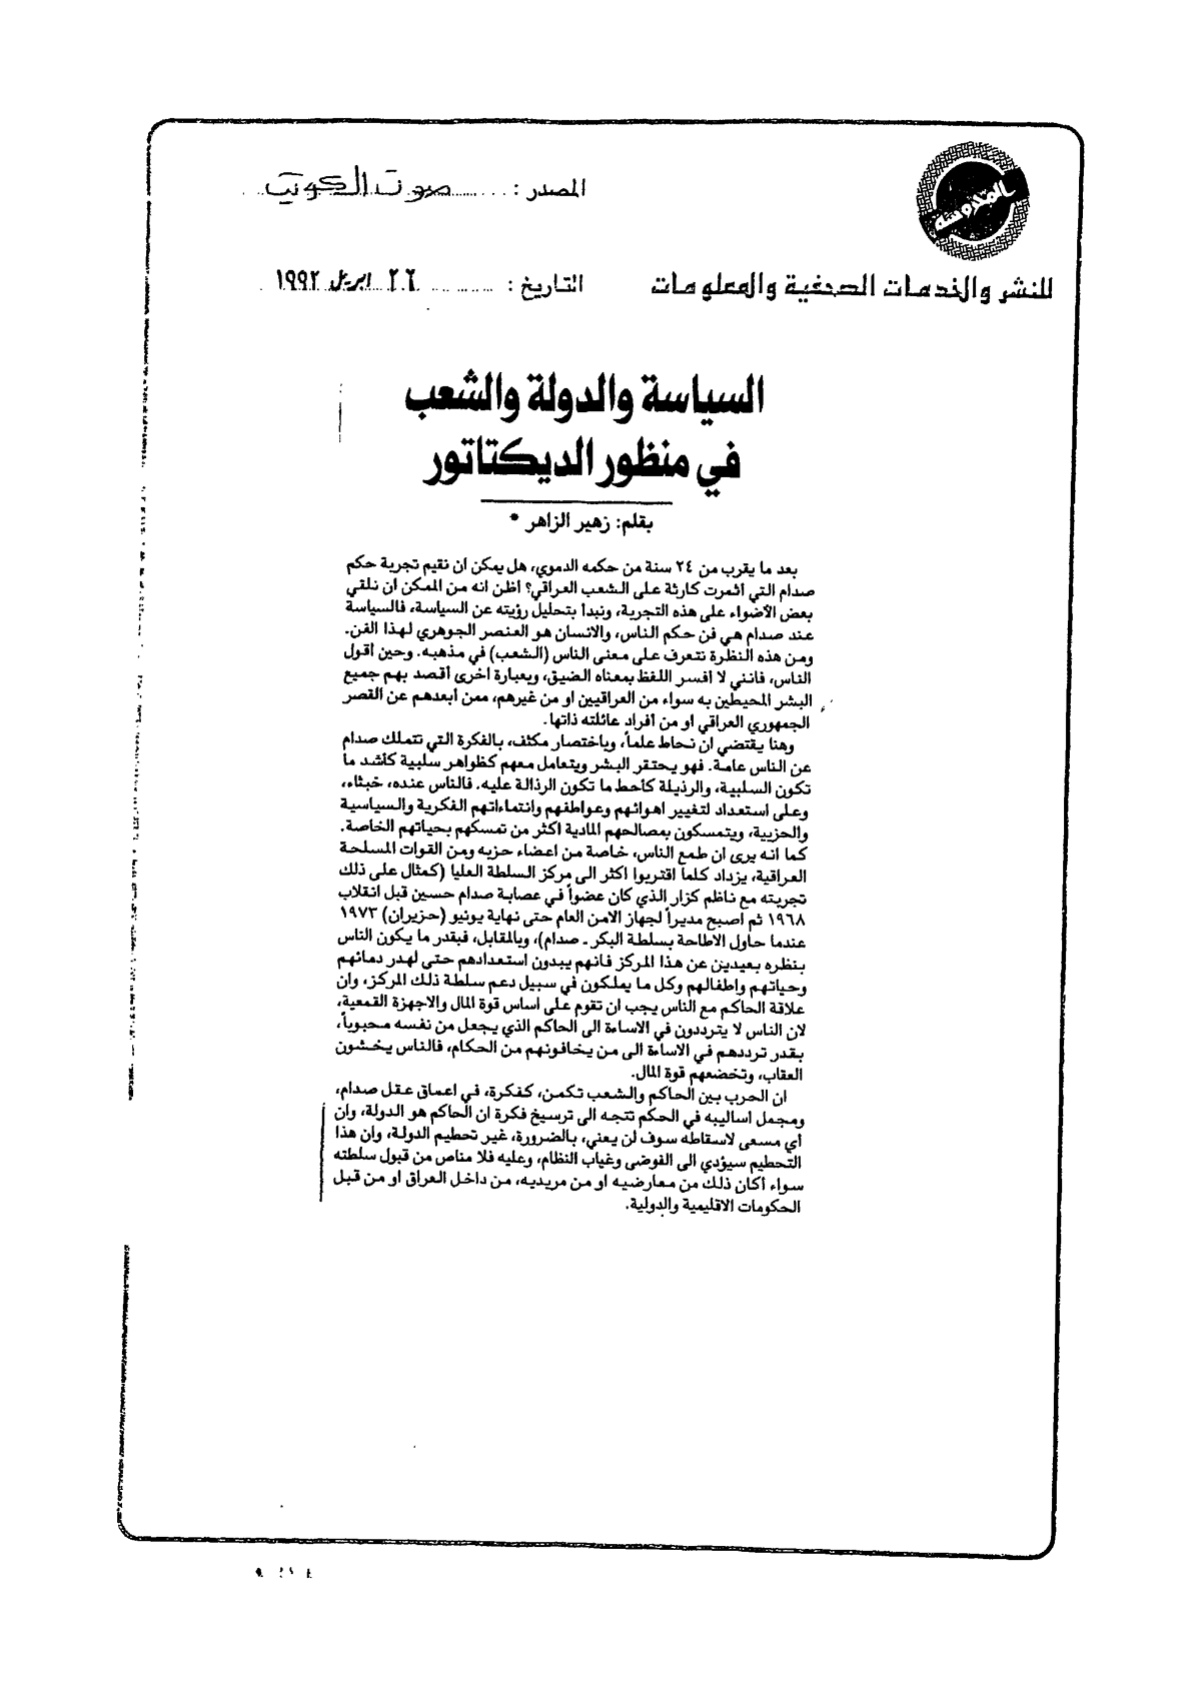 المصدر : صوت الكويت
للنشر والخدمات الصحفية والمعلومات
التاريخ : ٢٦ ابريل ١٩٩٢
السياسة والدولة والشعب
في منظور الديكتاتور
بقلم: زهير الزاهر *
بعد ما يقرب من ٢٤ سنة من حكمه الدموي، هل يمكن ان نقيم تجربة حكم
صدام التي اثمرت كارثة على الشعب العراقي؟ اظن انه من الممكن ان نلقي
بعض الأضواء على هذه التجربة، ونبدا بتحليل رؤيته عن السياسة، فالسياسة
عند صدام هي فن حكم الناس، والانسان هو العنصر الجوهري لهذا الفن.
ومن هذه النظرة نتعرف على معنى الناس (الشعب) في مذهبه. وحين اقول
الناس، فانني لا افسر اللفظ بمعناه الضيق، وبعبارة اخرى أقصد بهم جميع
البشر المحيطين به سواء من العراقيين او من غيرهم، ممن أبعدهم عن القصر
الجمهوري العراقي او من أفراد عائلته ذاتها.
وهنا يقتضي ان نحاط علماً، وباختصار مكثف، بالفكرة التي تتملك صدام
عن الناس عامة. فهو يحتقر البشر ويتعامل معهم كظواهر سلبية كأشد ما
تكون السلبية، والرذيلة كأحط ما تكون الرذالة عليه. فالناس عنده، خبثاء،
وعلى استعداد لتغيير اهوائهم وعواطفهم وانتماءاتهم الفكرية والسياسية
والحزبية، ويتمسكون بمصالحهم المادية اكثر من تمسكهم بحياتهم الخاصة.
كما انه يرى ان طمع الناس، خاصة من اعضاء حزبه ومن القوات المسلحة
العراقية، يزداد كلما اقتربوا اكثر الى مركز السلطة العليا (كمثال على ذلك
تجربته مع ناظم كزار الذي كان عضواً في عصابة صدام حسين قبل انقلاب
١٩٦٨ ثم اصبح مديراً لجهاز الامن العام حتى نهاية يونيو (حزيران) ١٩٧٣
عندما حاول الاطاحة بسلطة البكر ـ صدام)، وبالمقابل، فبقدر ما يكون الناس
بنظره بعيدين عن هذا المركز فانهم يبدون استعدادهم حتى لهدر دمائهم
وحياتهم واطفالهم وكل ما يملكون في سبيل دعم سلطة ذلك المركز، وان
علاقة الحاكم مع الناس يجب ان تقوم على اساس قوة المال والاجهزة القمعية،
لان الناس لا يترددون في الاساءة الى الحاكم الذي يجعل من نفسه محبوباً،
بقدر ترددهم في الاساءة الى من يخافونهم من الحكام، فالناس يخشون
العقاب، وتخضعهم قوة المال.
ان الحرب بين الحاكم والشعب تكمن، كفكرة، في اعماق عقل صدام،
ومجمل اساليبه في الحكم تتجه الى ترسيخ فكرة ان الحاكم هو الدولة، وان
أي مسعى لاسقاطه سوف لن يعني، بالضرورة، غير تحطيم الدولة، وان هذا
التحطيم سيؤدي الى الفوضى وغياب النظام، وعليه فلا مناص من قبول سلطته
سواء أكان ذلك من معارضيه او من مريديه، من داخل العراق او من قبل
الحكومات الاقليمية والدولية.